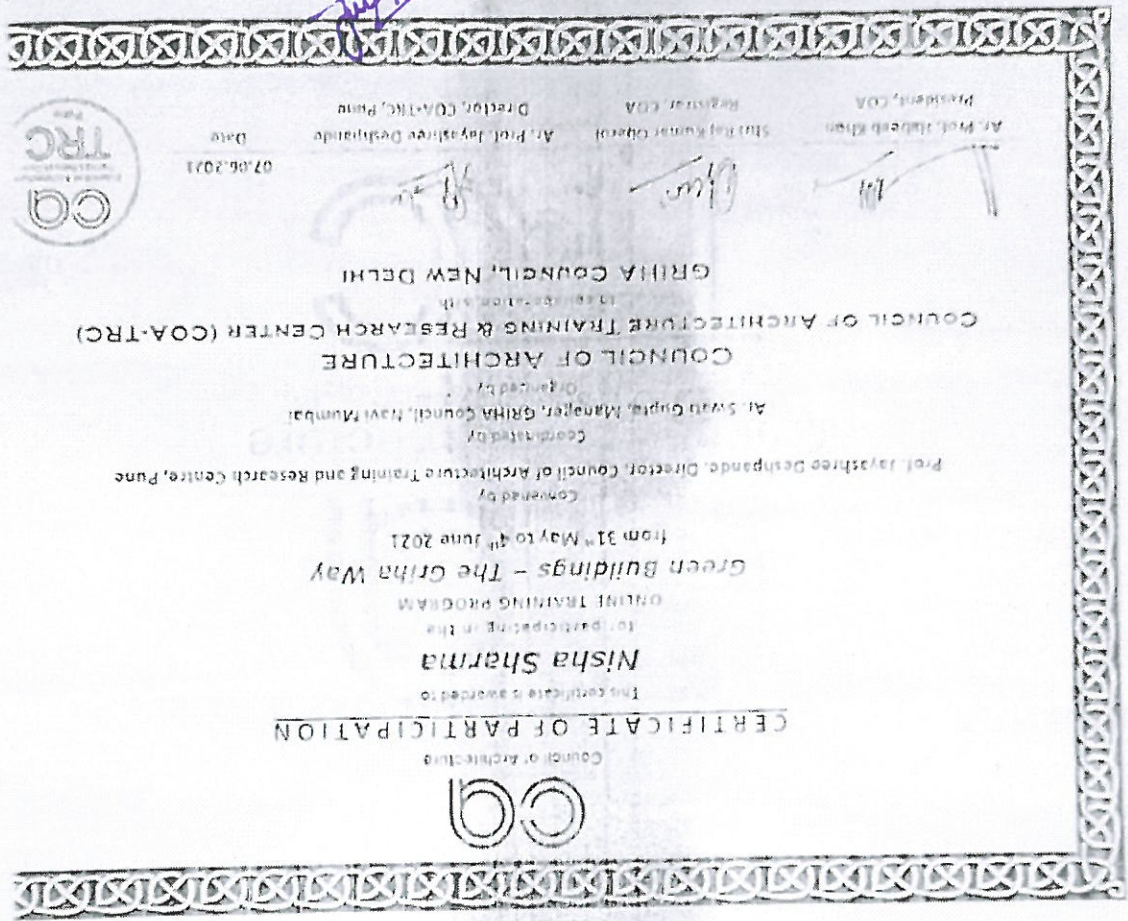 Council of Architecture
CERTIFICATE OF PARTICIPATION
This certificate is awarded to
Nisha Sharma
for participating in the
ONLINE TRAINING PROGRAM
Green Buildings – The Griha Way
from 31st May to 4th June 2021
Convened by
Prof. Jayashree Deshpande, Director, Council of Architecture Training and Research Centre, Pune
Coordinated by
Ar. Swati Gupta, Manager, GRIHA Council, Navi Mumbai
Organized by
COUNCIL OF ARCHITECTURE
COUNCIL OF ARCHITECTURE TRAINING & RESEARCH CENTER (COA-TRC)
GRIHA COUNCIL, NEW DELHI
Ar. Prof. Habeeb Khan
President, COA
Shri Raj Kumar Oberoi
Registrar, COA
Ar. Prof. Jayashree Deshpande
Director, COA-TRC, Pune
07.06.2021
Date
TRC
Pune